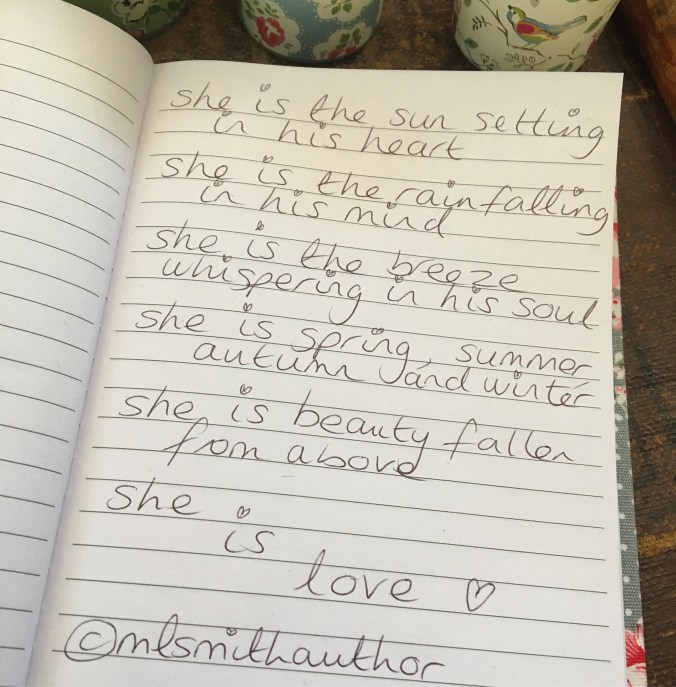 she is the sun setting
in his heart
she is the rain falling
in his mind
she is the breeze
whispering in his soul
she is spring, summer
autumn and winter
she is beauty fallen
from above
she
is
love ♡
©mlsmithauthor